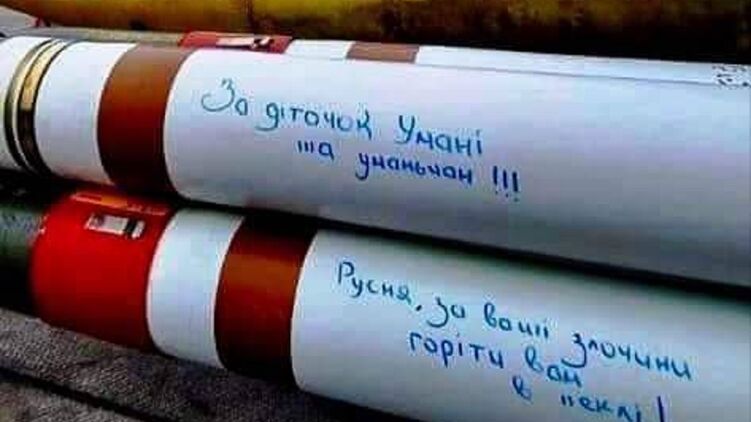 За діточок Умані
та уманьчан !!!
Русня, за ваші злочини
горіти вам
в пеклі!